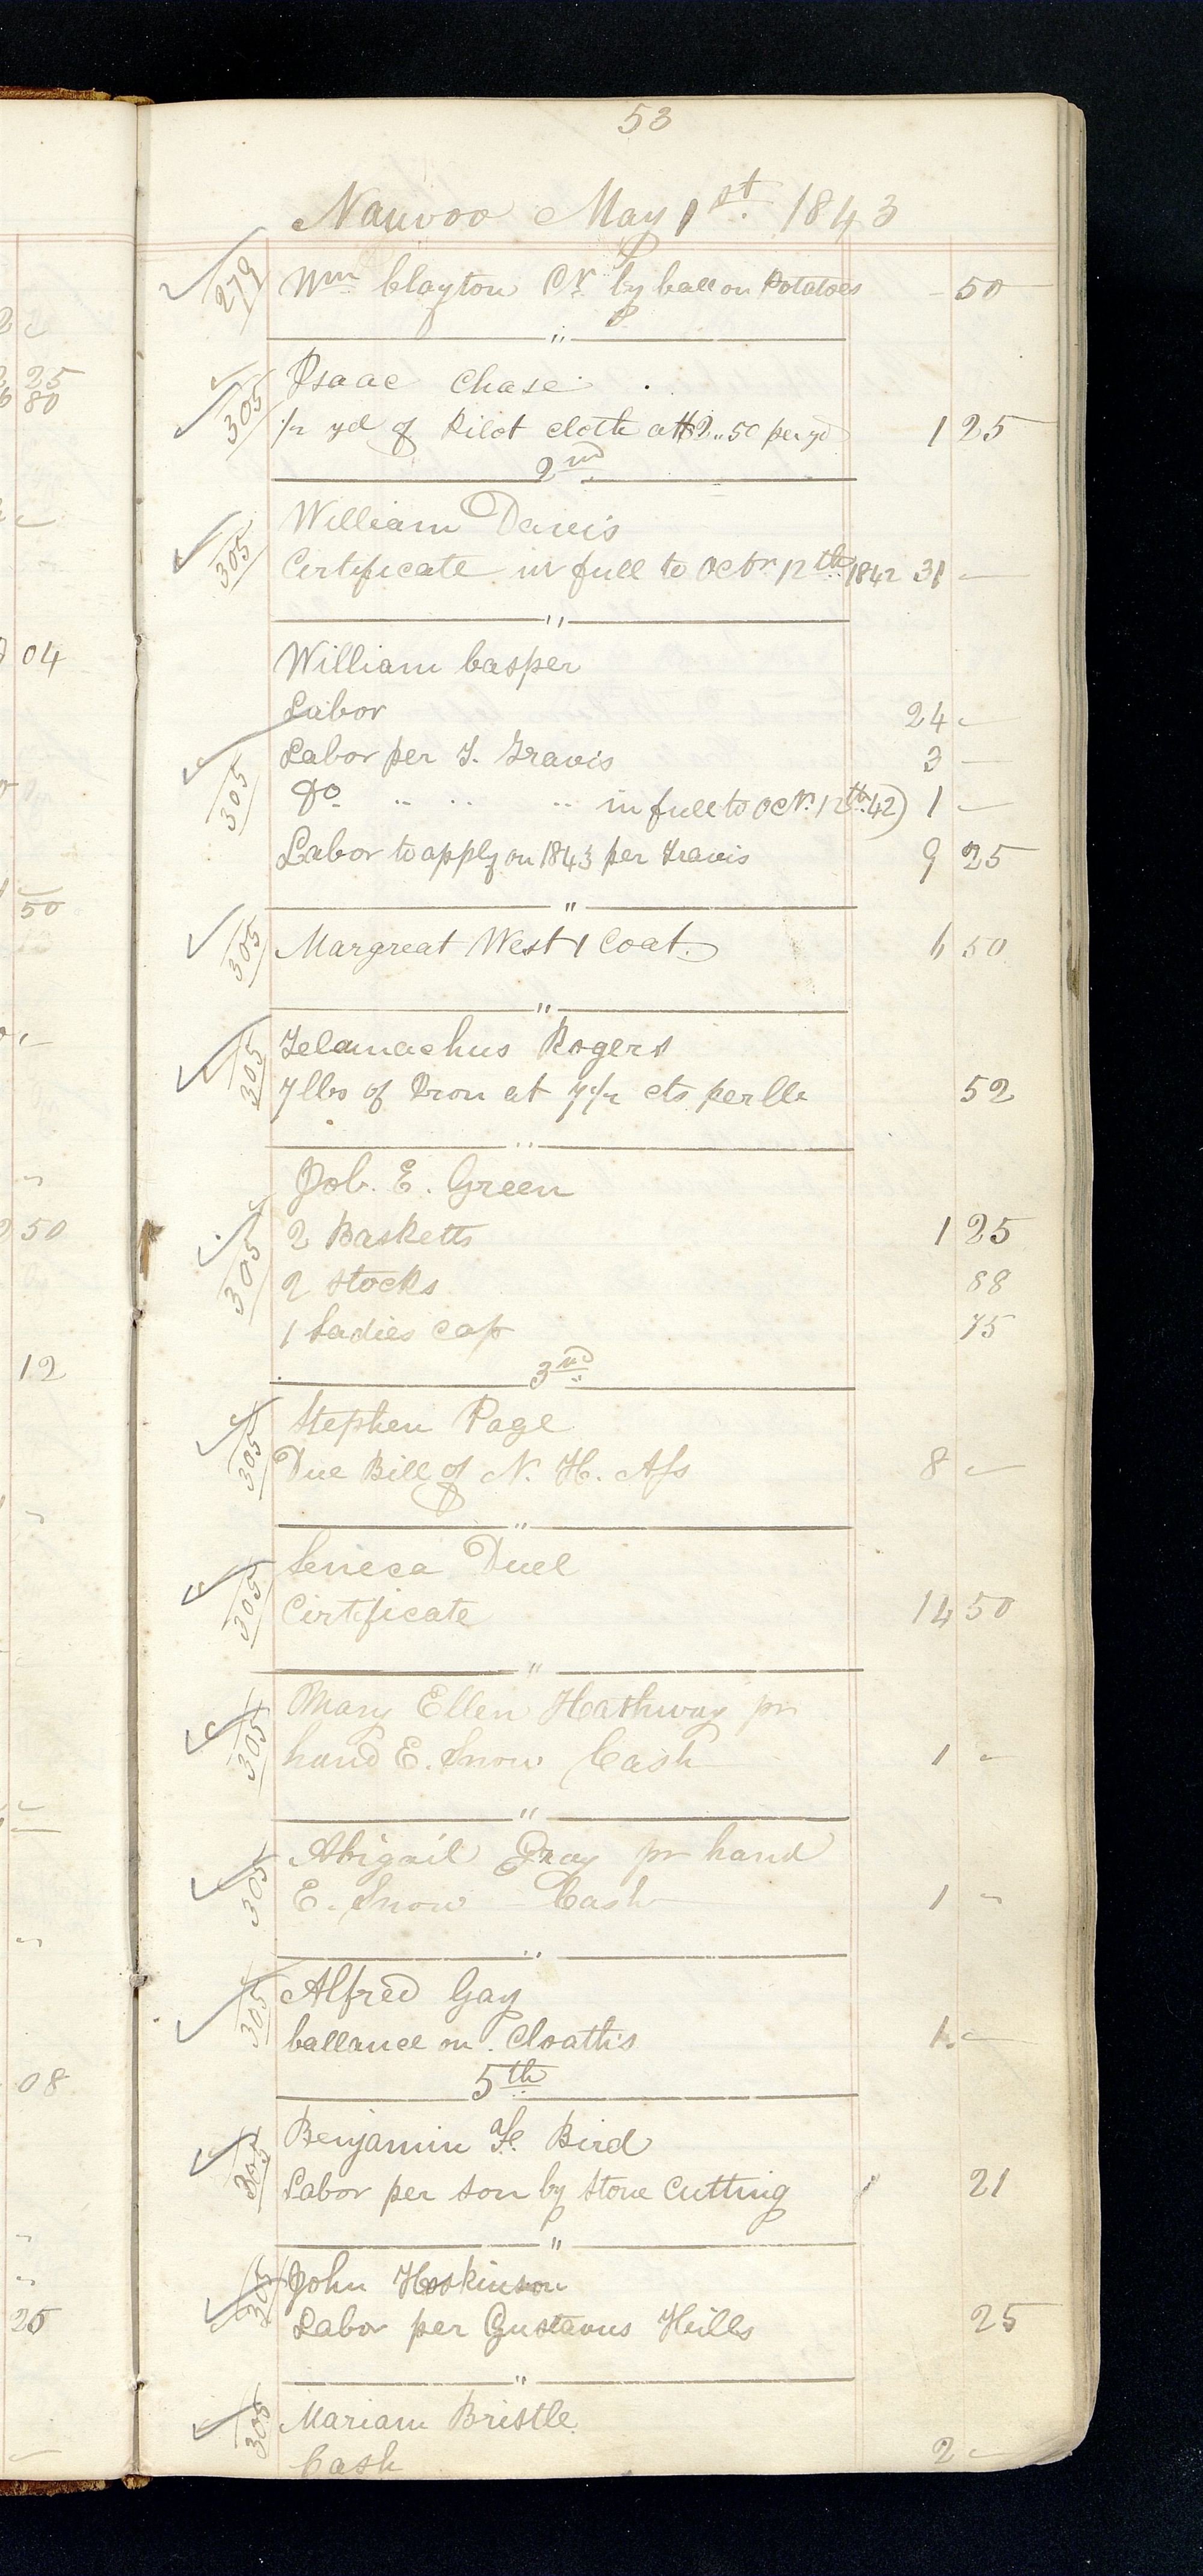 53
Nauvoo May 1st. 1843
279 Wm Clayton Cr. by ball on Potatoes - 50
"
Isaac Chase
305 1/2 yd of Pilot cloth at $2..50 per yd 1 25
2nd
William Davis
305 Certificate in full to Octr 12th 1842 31 -
"
William Casper
Labor 24 -
Labor per T. Travis 3 -
305 Do .. .. .. in full to Octr. 12th. 42) 1 -
Labor to apply on 1843 per Travis 9 25
"
305 Margreat West 1 Coat. 6 50
"
Telamachus Rogers
305 7 lbs of Iron at 7 1/2 cts per lb 52
"
Job. E. Green
305 2 Basketts 1 25
2 Stocks 88
1 Ladies cap 75
3nd
Stephen Page
305 Due Bill of N. H. Ass 8 -
"
Seneca Duel
305 Certificate 14 50
"
Mary Ellen Hathway pr
305 hand E. Snow Cash 1 -
"
Abigail Gray pr hand
305 E. Snow - Cash 1 -
"
Alfred Gay
305 ballance on Cloaths 1. -
5th
Benjamin F. Bird
305 Labor per son by Stone Cutting 21
"
305 John Hoskinson
Labor per Gustavus Hills 25
"
305 Mariam Bristle
Cash 2 -